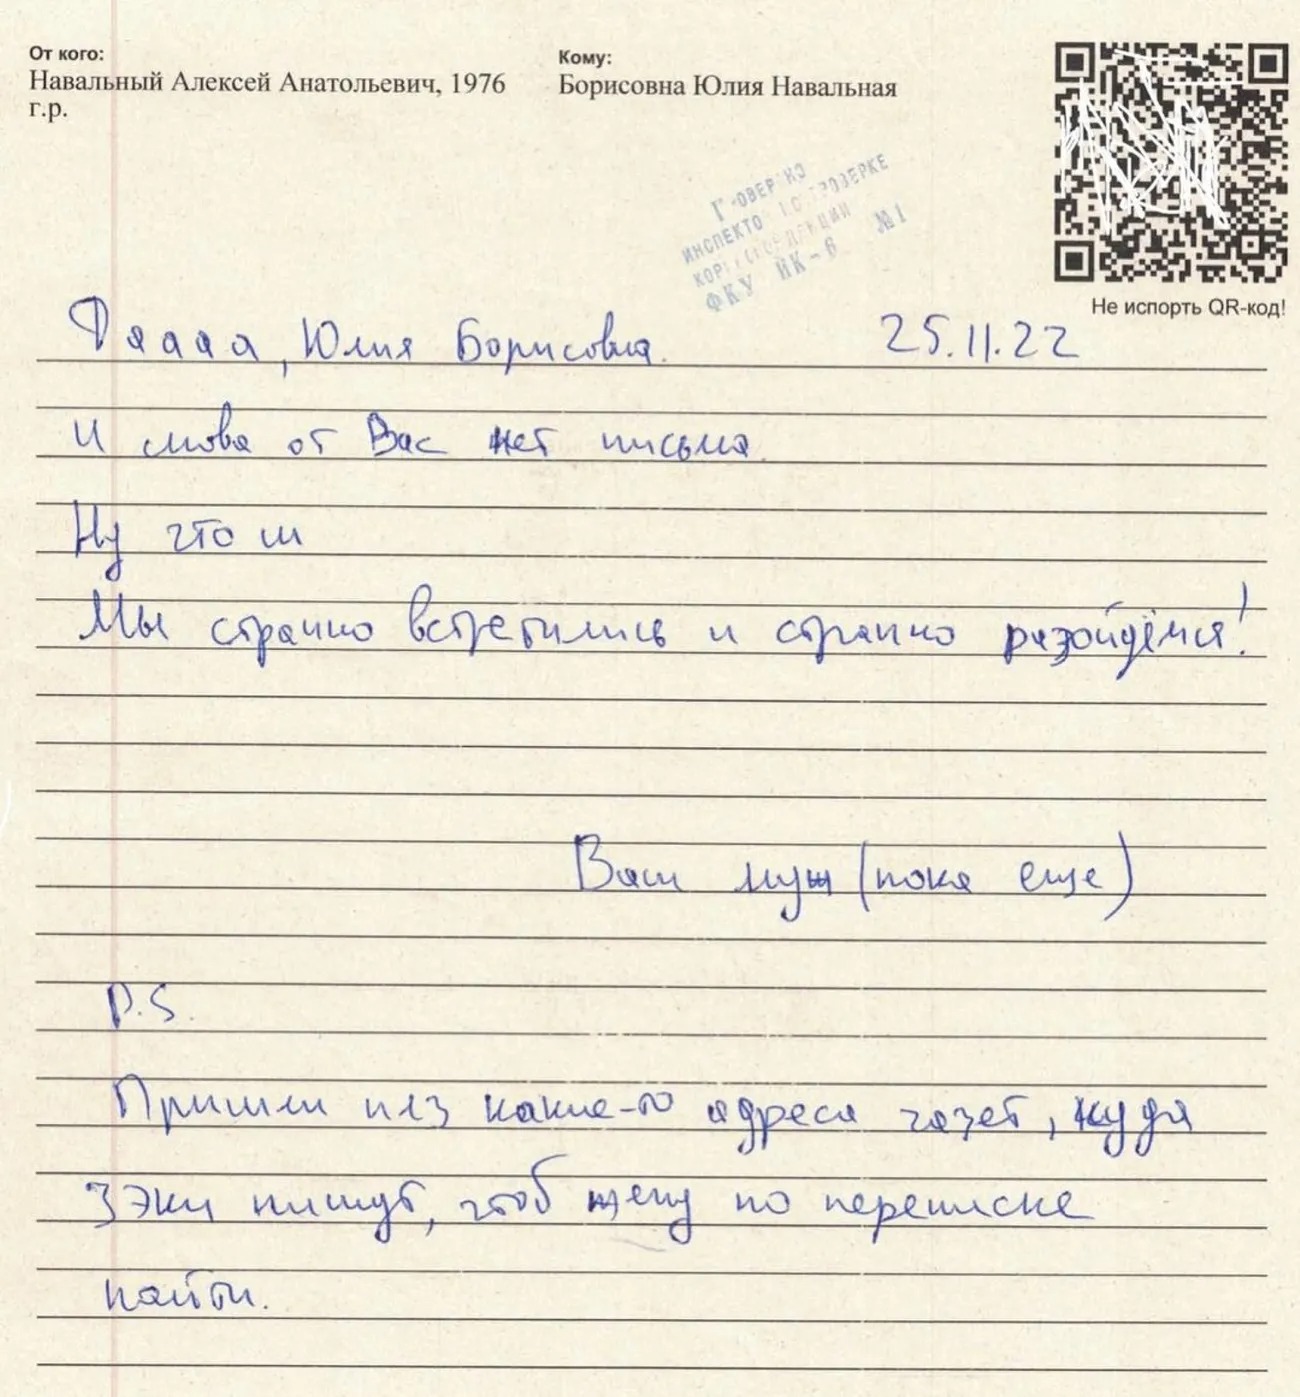 От кого:
Навальный Алексей Анатольевич, 1976
г.р.
Кому:
Борисовна Юлия Навальная
ИНСПЕКТО
ФКУ ИК-6 №1
Не испорть QR-код!
Даааа, Юлия Борисовна. 25.11.22
И снова от Вас нет письма.
Ну что ш
Мы странно встретились и странно разойдёмся!
Ваш муж (пока еще)
P.S.
Пришли плз какие-то адреса газет, куда
зэки пишут, чтоб жену по переписке
найти.